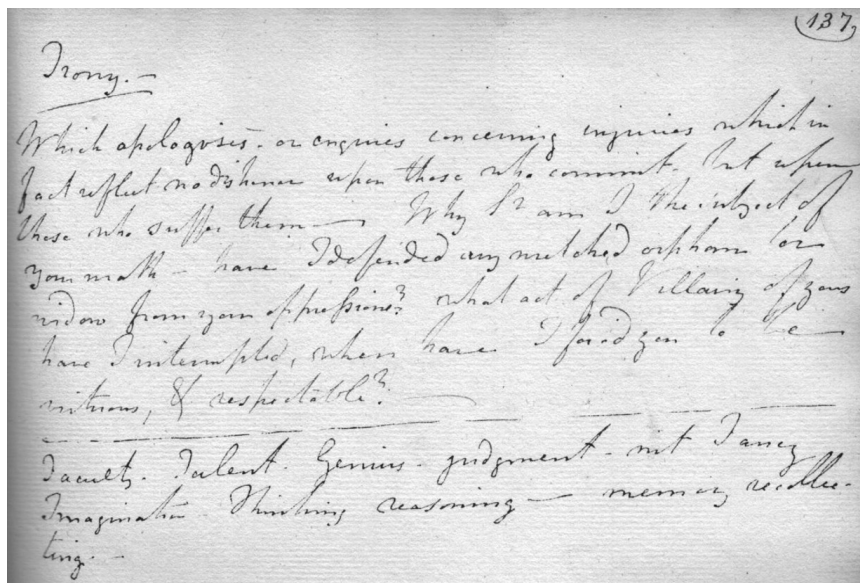 137,
Irony. —
Which apologises - or enquires concerning injuries which in
fact reflect no dishonor upon those who commit - but upon
those who suffer them — Why Sr am I the subject of
your wrath - have I defended any wretched orphan or
widow from your oppressions? what act of Villainy of yours
have I interrupted, when have I forced you to be
virtuous, & respectable? —
Faculty - Talent - Genius - judgment - wit Fancy
Imagination Thinking reasoning — memory recollec-
ting. —